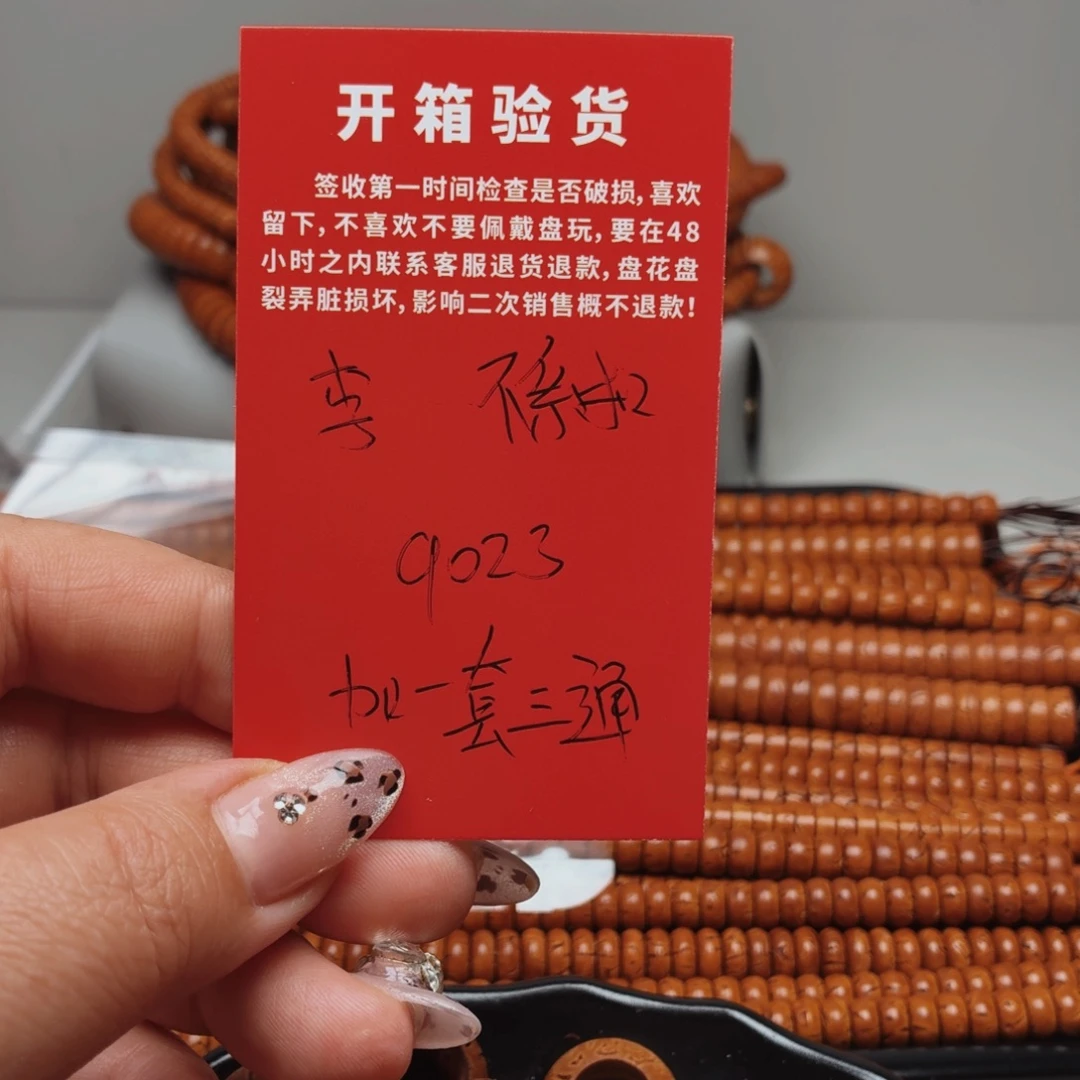 开箱验货
签收第一时间检查是否破损,喜欢
留下,不喜欢不要佩戴盘玩,要在48
小时之内联系客服退货退款,盘花盘
裂弄脏损坏,影响二次销售概不退款!
李
9023
加一套三通